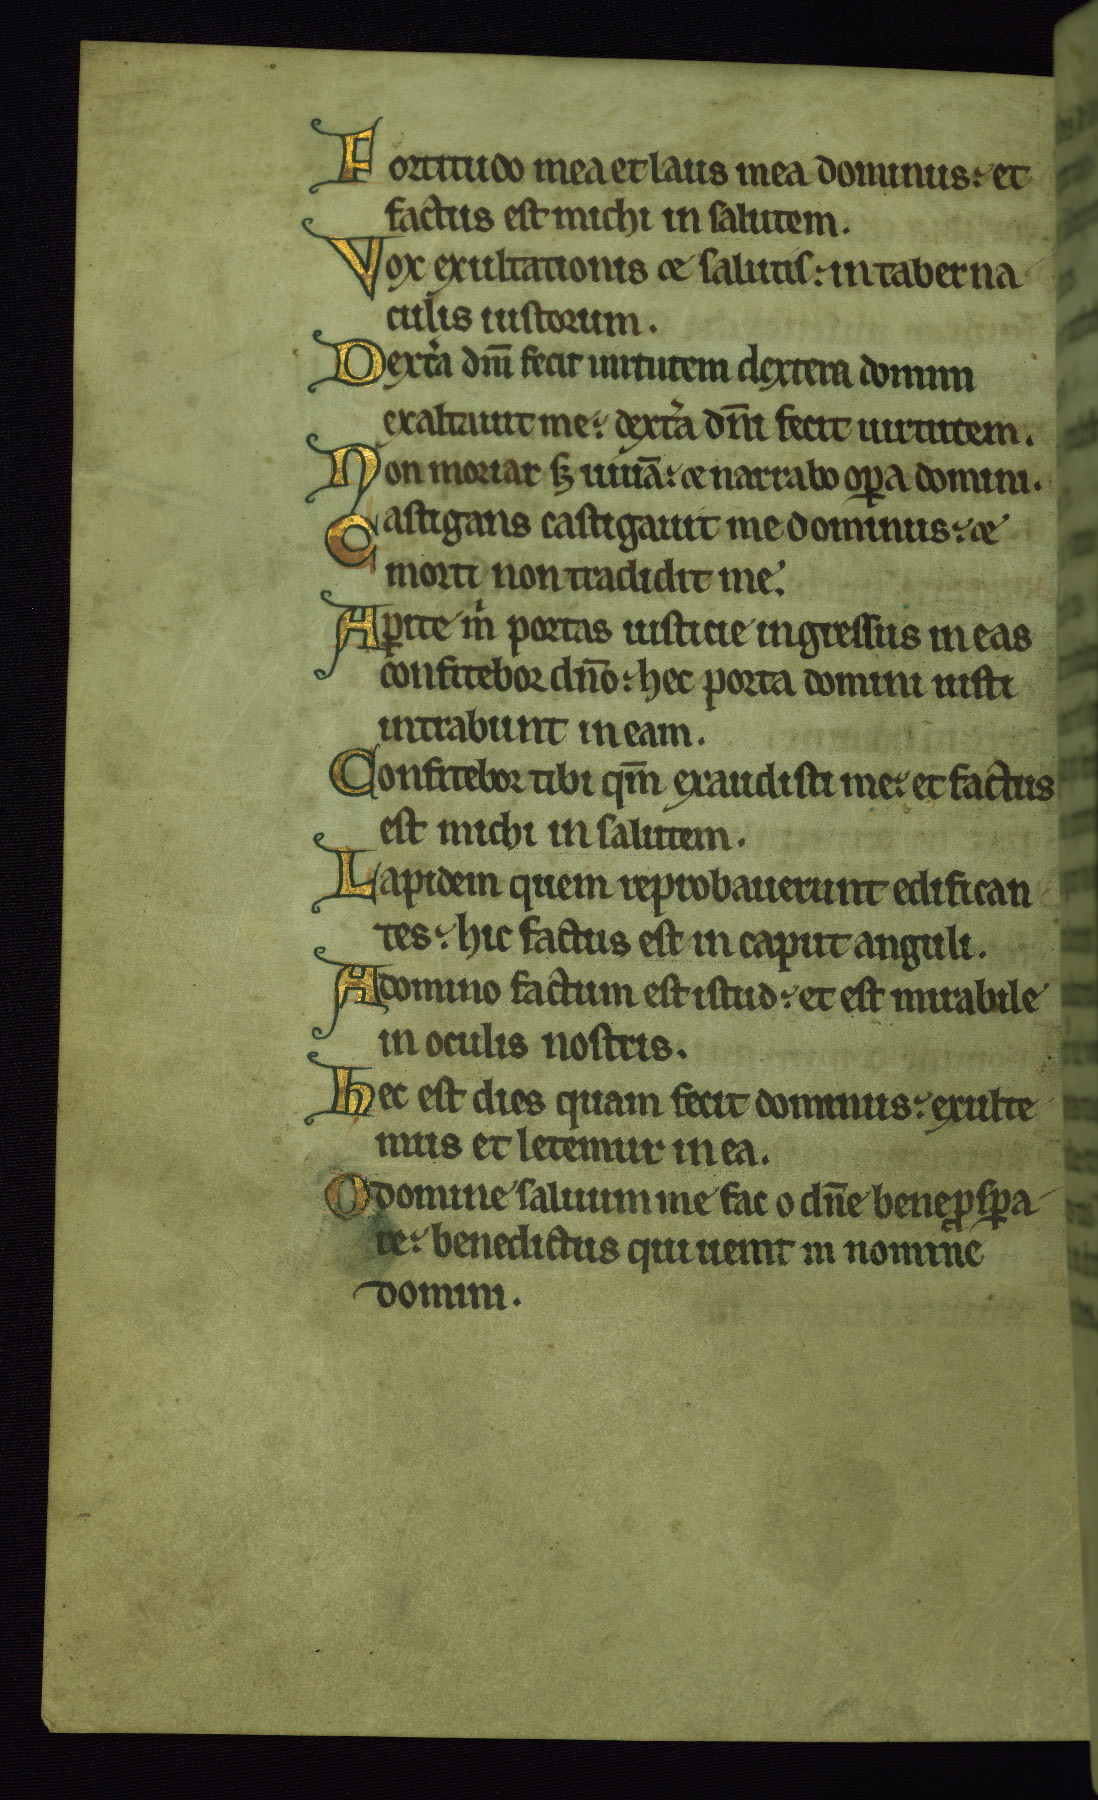 Fortitudo mea et laus mea dominus: et
factus est michi in salutem.
Vox exultationis & salutis: in taberna
culis iustorum.
Dext̉a dm̄ fecit uirtutem dextera domini
exaltauit me: dext̉a dn̄i fecit uirtutem.
Non moriar s; uiuā: & narrabo oꝑa domini.
Castigans castigauit me dominus: &
morti non tradidit me.
Aꝑite m̍ portas iusticie ingressus in eas
confitebor dn̄o: hec porta domini iusti
intrabunt in eam.
Confitebor tibi qm̄ exaudisti me: et factus
est michi in salutem.
Lapidem quem reprobauerunt edifican
tes: hic factus est in caput anguli.
A domino factum est istud: et est mirabile
in oculis nostris.
Hec est dies quam fecit dominus: exulte
mus et letemur in ea.
O domine saluum me fac o dn̄e bene ꝓsꝑa
re: benedictus qui uenit in nomine
domini.